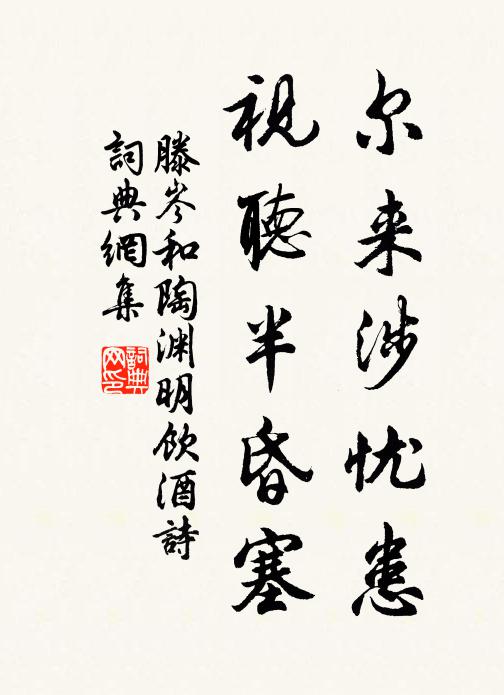 尔来涉忧患
视听半昏塞
滕岑和陶渊明饮酒诗
詞典網集
詞典网印